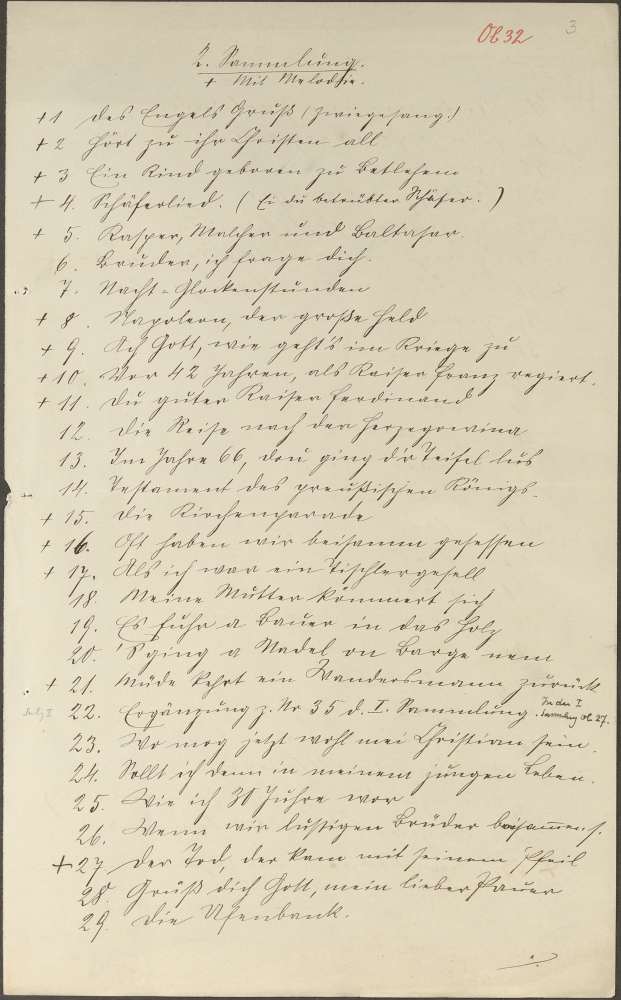 Ob 32 3
2. Sammlung.
+ Mit Melodie.
+ 1 Des Engels Gruß (Zwiegesang.)
+ 2 Hört zu ihr Christen all
+ 3 Ein Kind geboren zu Betlehem
+ 4. Schäferlied. (Ei du betrübter Schäfer.)
+ 5. Kasper, Malcher und Baltasar.
6. Bruder, ich frage dich.
7. Nacht-Glockenstunden
+ 8. Napoleon, der große Held
+ 9. Ach Gott, wie geht's im Kriege zu
+ 10. Vor 42 Jahren, als Kaiser Franz regiert.
+ 11. Du guter Kaiser Ferdinand
12. Die Reise nach der Herzegowina
13. Im Jahre 66, dou ging d'r Teifel lus
14. Testament des preußischen Königs.
+ 15. Die Kirchenparade
+ 16. Oft haben wir beisamm gesessen
+ 17. Als ich war ein Tischlergesell
18. Meine Mutter kömmert sich
19. Es fuhr a Bauer in das Holz
20. 'S ging a Madel on Barge nem
+ 21. Müde kehrt ein Wandersmann zurück.
22. Ergänzung z. Nr 35 d. I. Sammlung. In der I. Sammlung Ob 27.
23. Wo mog jetzt wohl mei Christian sein.
24. Sollt ich denn in meinem jungen Leben.
25. Wie ich 30 Juhre wor
26. Wenn wir lustigen Brüder beisammen s.
+ 27 Der Tod, der kam mit seinem Pfeil
28. Grüß dich Gott, mein lieber Pauer
29. Die Ufenbank.